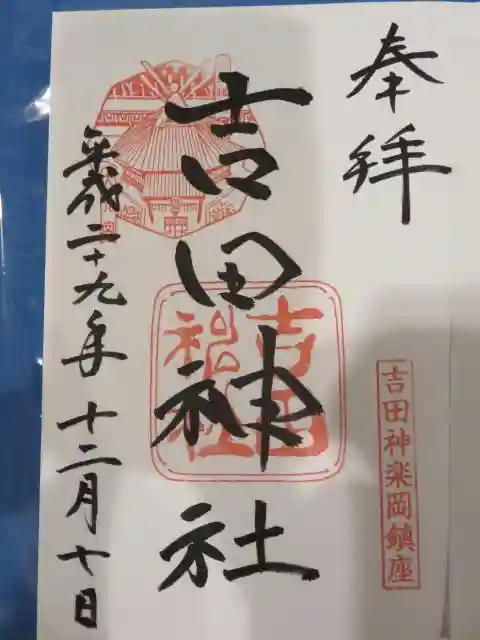 奉拝
吉田神楽岡鎮座
吉田神社
吉田神社
平成二十九年十二月十日